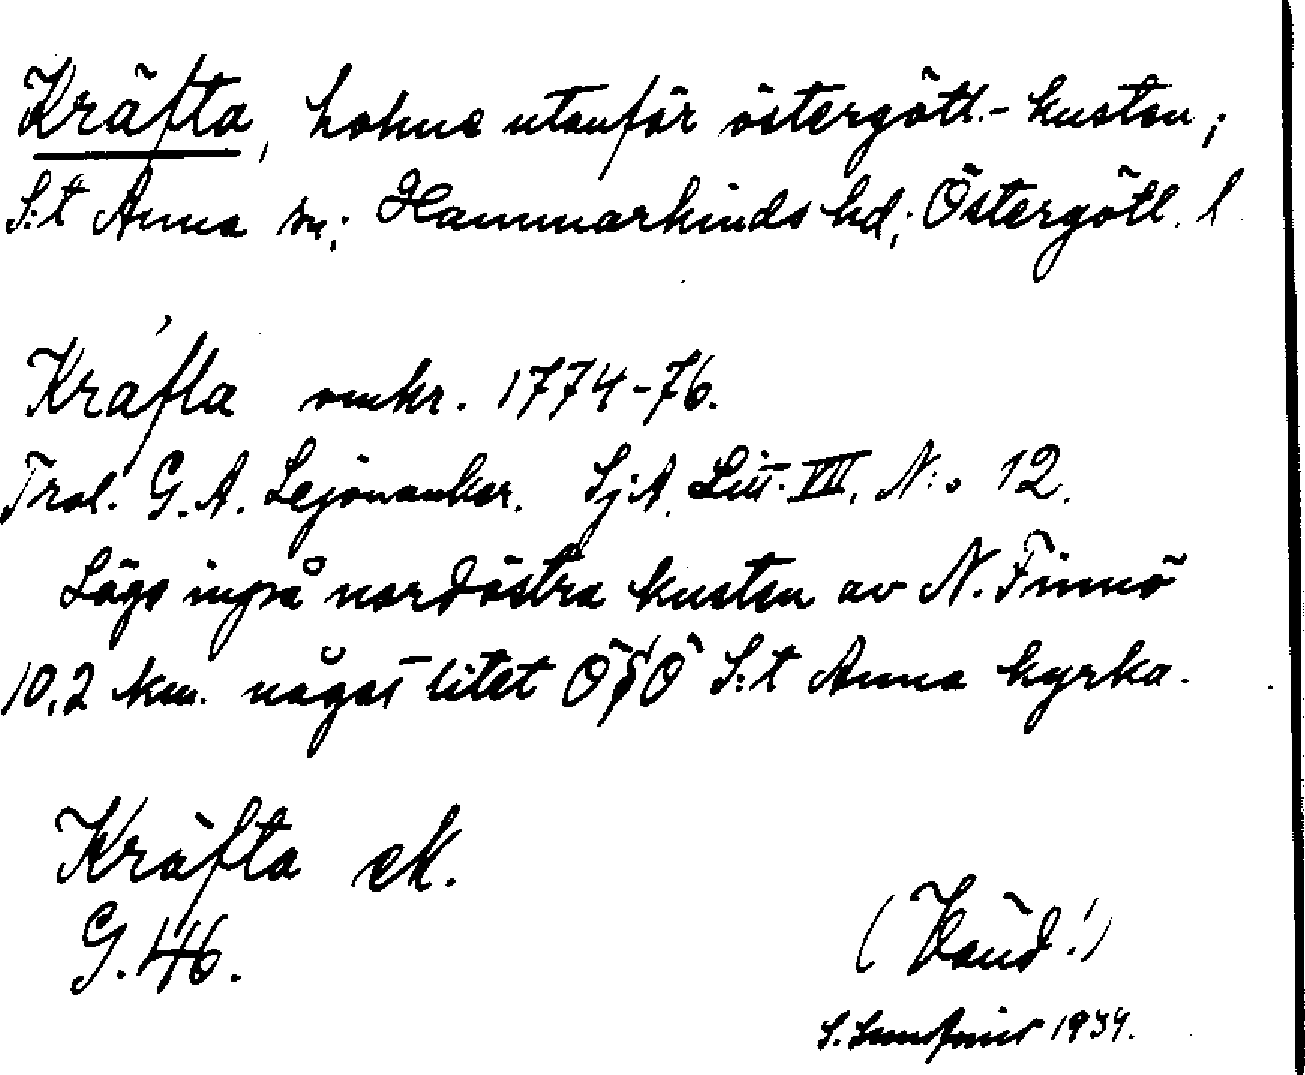 Kräfta, holme utanför östergötl.- kusten;
S:t Anna sn; Hammarkinds hd; Östergötl. l
Kräfta omkr. 1774-76.
Trol. G. A. Lejonanker. Sj.A. Litt. VIII, N:o 12.
Låge inpå nordöstra kusten av N. Finnö
10,2 km. något litet ÖSÖ S:t Anna kyrka.
Kräfta ek.
G. 46.
(Vänd!)
S. 1934.